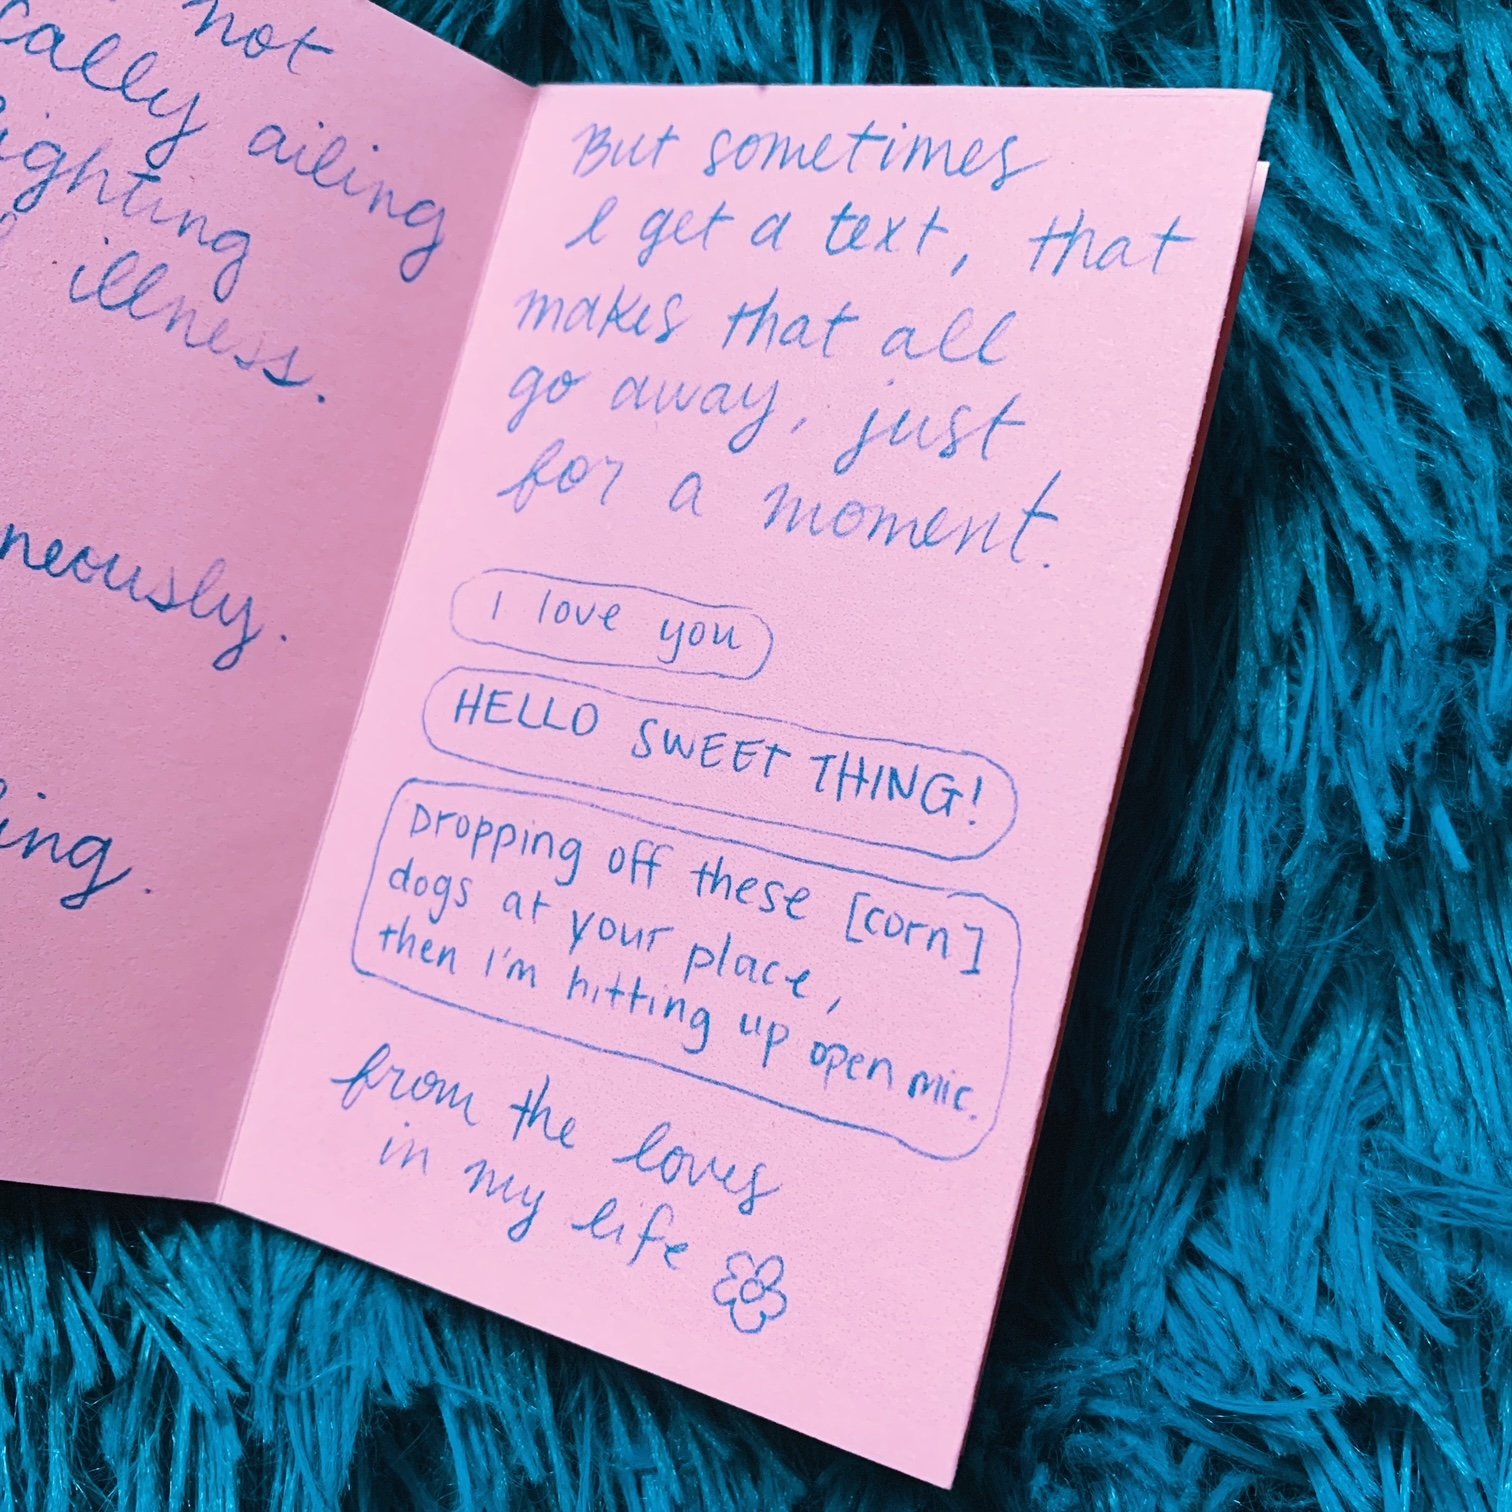 not
cally ailing
ighting
illness.
neously.
ing.
But sometimes
I get a text, that
makes that all
go away, just
for a moment.
I love you
HELLO SWEET THING!
Dropping off these [corn]
dogs at your place,
then I'm hitting up open mic.
from the loves
in my life